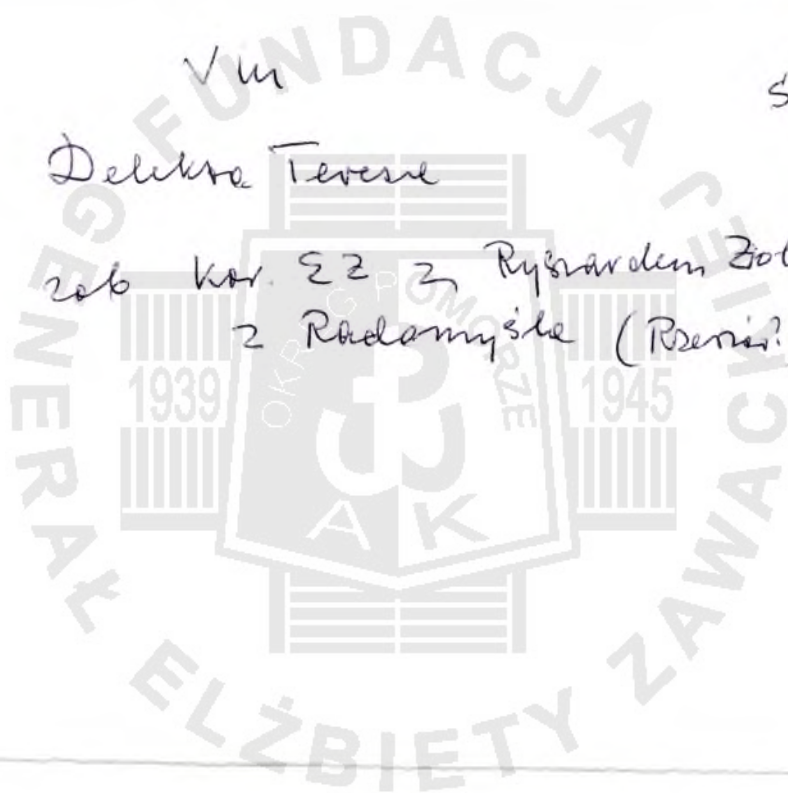 VIII
Ś
Delekta Teresa
zob kor. EZ z Ryszardem Zioł
z Radomyśla (Rzesz
FUNDACJA GENERAŁ ELŻBIETY ZAWACKIEJ
OKRĘG POMORZE
1939
1945
AK